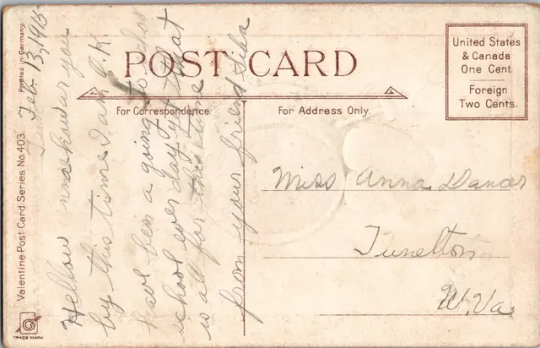 POST CARD
For Correspondence.
For Address Only.
United States
& Canada
One Cent
Foreign
Two Cents.
Printed in Germany
Valentine Post Card Series No. 403
TRADE MARK
Feb. 13, 1915
Hellow how ar you
by this time I am O.K.
have been a going to
school ever day yet that
is all for this time
from your friend
Miss Anna
Tunelton
W. Va.